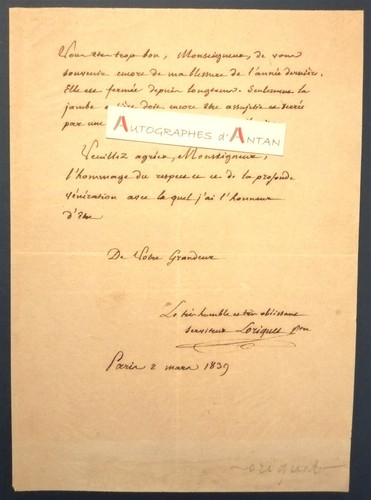 Vous etes trop bon, Monseigneur, de vous
souvenir encore de ma blessure de l'année dernière.
Elle est fermée depuis longtems. Seulement la
jambe doit encore être assujetie et serrée
par une
AUTOGRAPHES d'ANTAN
Veuillez agréer, Monseigneur,
l'hommage du respect et de la profonde
vénération avec laquel j'ai l'honneur
d'être
De Votre Grandeur
Le très humble et très obéissant
serviteur Loriquet
Paris 2 mars 1839
Loriquet